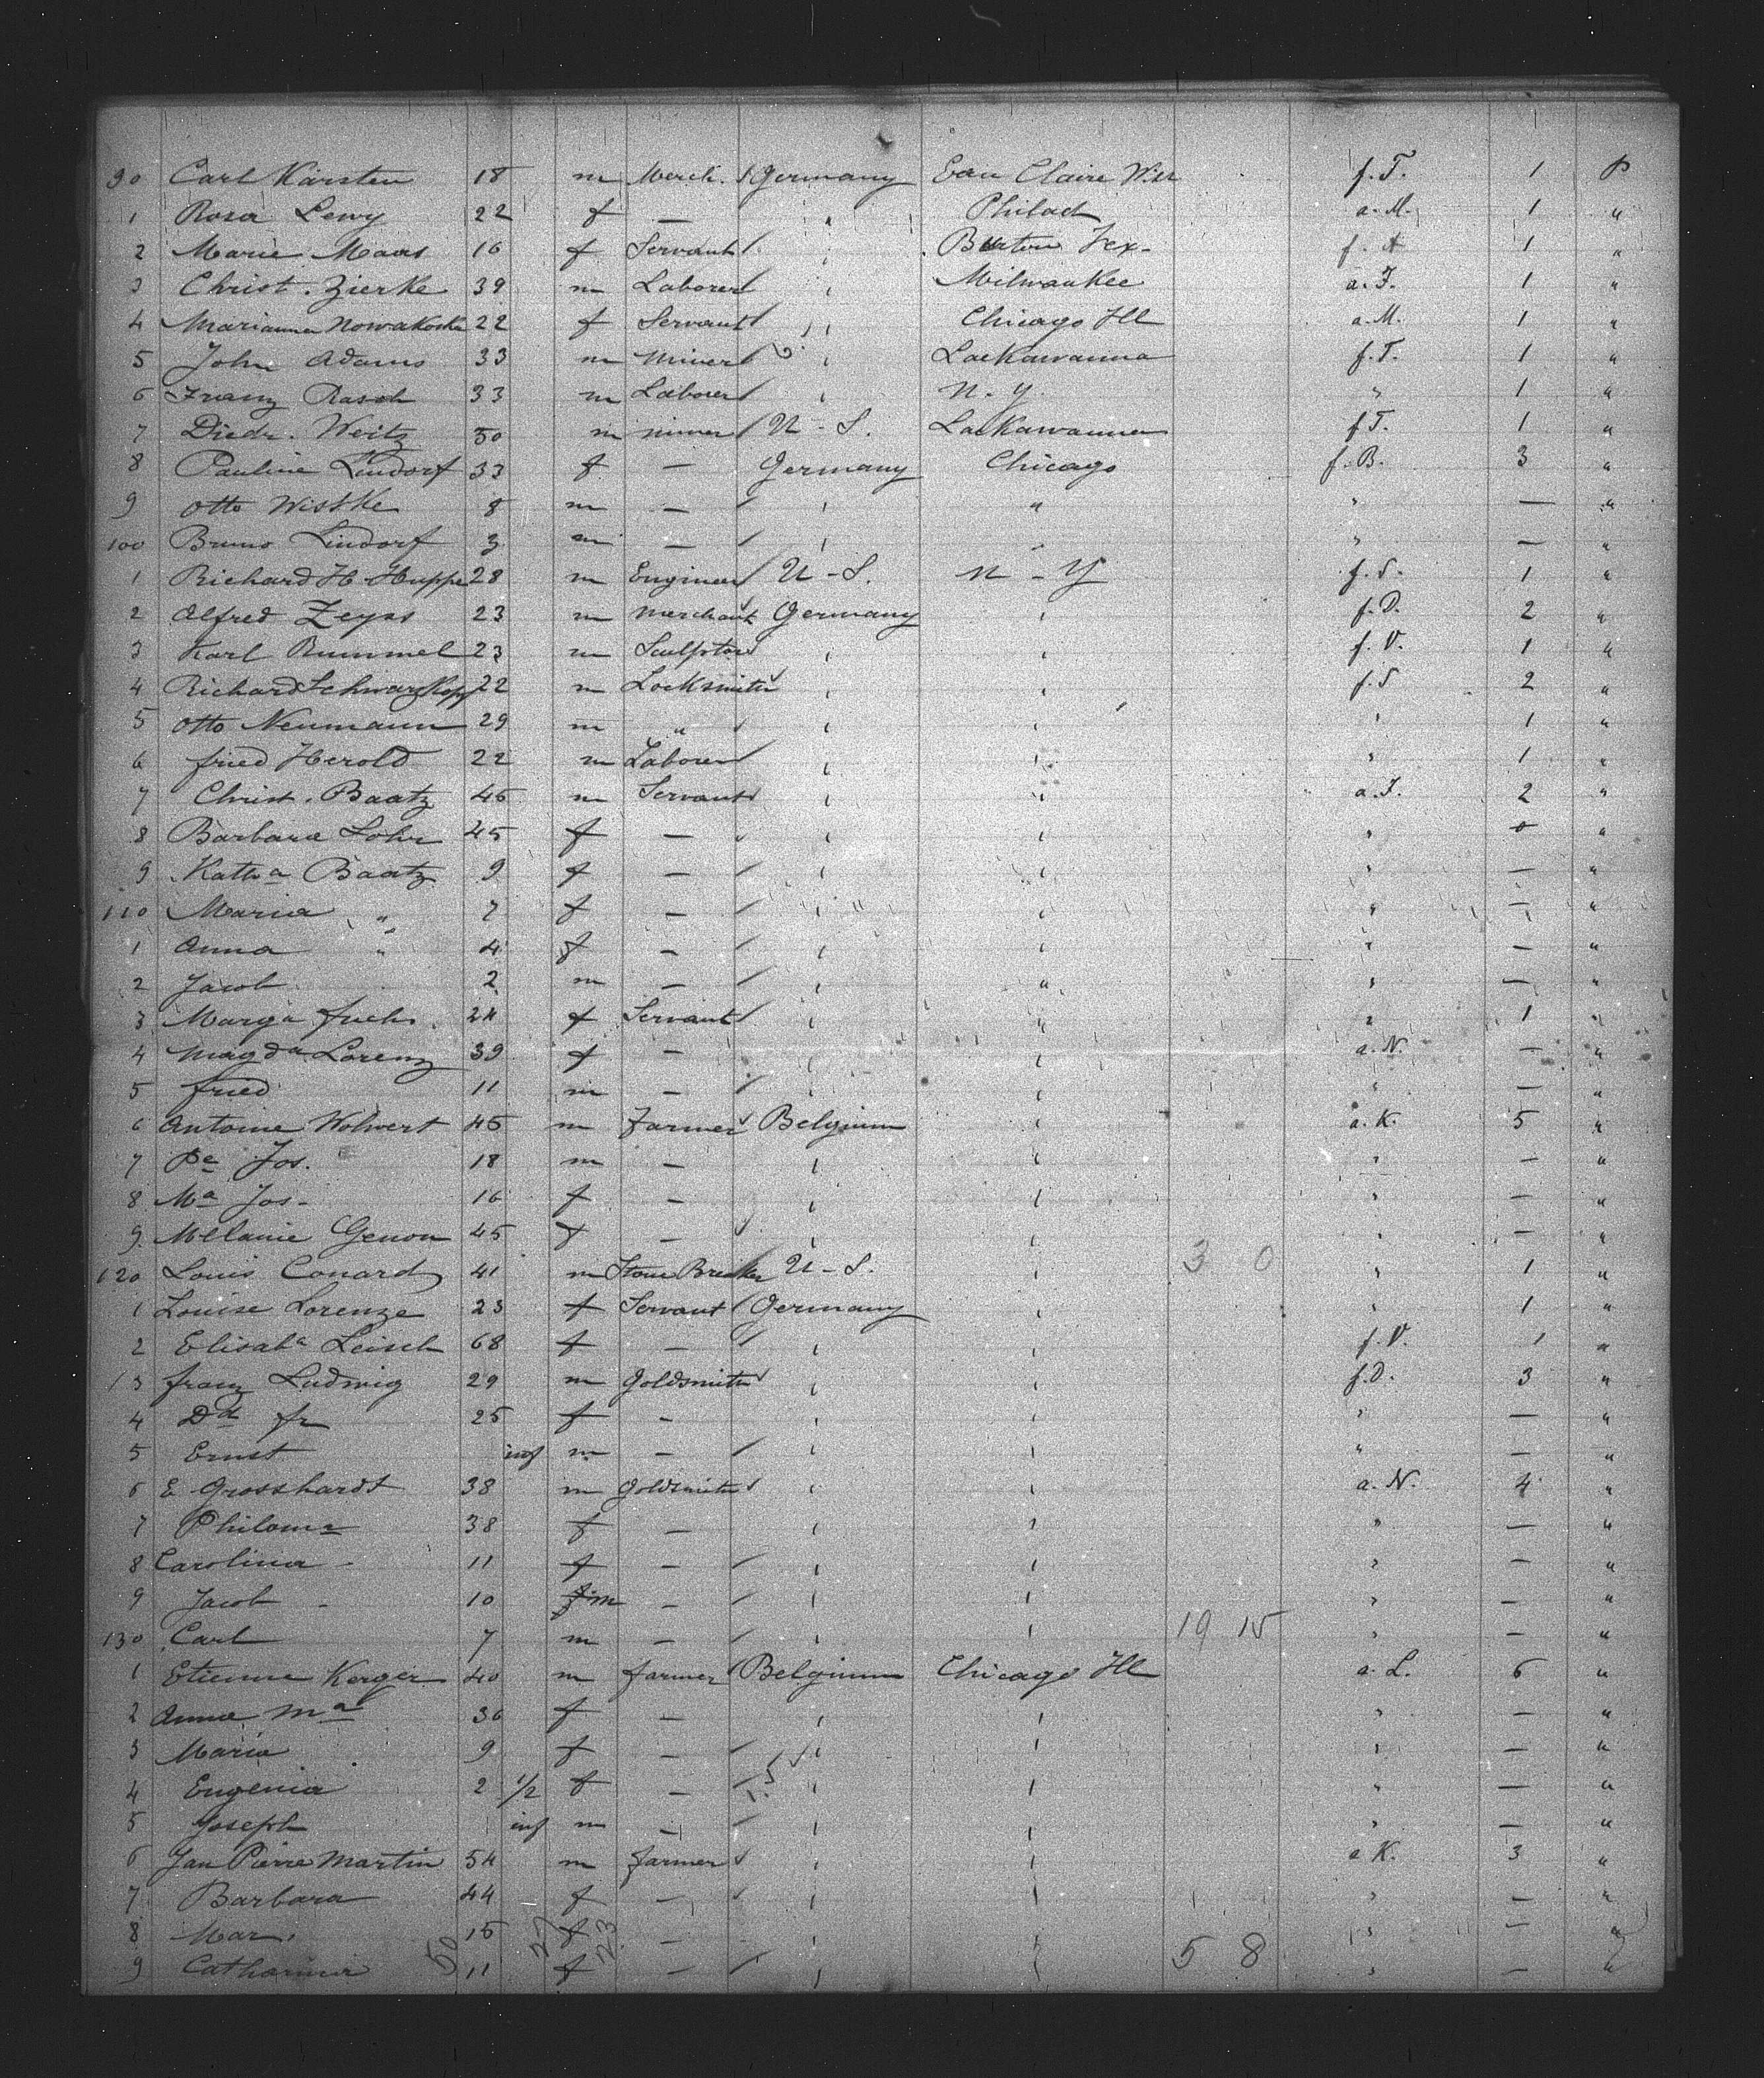 90 Carl Karsten 18 m Merch. Germany Eau Claire Wis f. T. 1 P
1 Rosa Lewy 22 f — " Philad a. M. 1 "
2 Marie Maas 16 f Servant " Burton Tex- f. A 1 "
3 Christ. Zierke 39 m Laborer " Milwaukee a. F. 1 "
4 Marianna Nowakoska 22 f Servant " Chicago Ill a. M. 1 "
5 John Adams 33 m Miner " Lackawanna f. T. 1 "
6 Franz Rasch 33 m Laborer " N. Y. " 1 "
7 Diedr. Weitz 50 m miner U-S. Lackawanna f T. 1 "
8 Pauline Lindorf 33 f — Germany Chicago f. B. 3 "
9 Otto Wistke 8 m — " " " — "
100 Bruno Lindorf 3 m — " " " — "
1 Richard H. Huppe 28 m Engineer U-S. N-Y f. S. 1 "
2 Alfred Zeyss 23 m merchant Germany " f. D. 2 "
3 Karl Rummel 23 m Sculptor " " f. V. 1 "
4 Richard Schwarzkopf 22 m Locksmith " " f. S 2 "
5 Otto Neumann 29 m " " " " 1 "
6 fried Herold 22 m Laborer " " " 1 "
7 Christ. Baatz 45 m Servant " " a. F. 2 "
8 Barbara Lohr 45 f — " " " "
9 Kath a Baatz 9 f — " " " — "
110 Maria " 7 f — " " " — "
1 Anna " 4 f — " " " — "
2 Jacob 2 m — " " " — "
3 Marga Fuchs 24 f Servant " " " 1 "
4 Magda Lorenz 39 f — " " a. N. — "
5 fried 11 m — " " " — "
6 Antoine Wolwert 45 m Farmer Belgium " a. K. 5 "
7 Pe Jos. 18 m — " " " — "
8 Ma Jos- 16 f — " " " — "
9. Melanie Genon 45 f — " " " — "
120 Louis Conard 41 m Stone Breaker U-S. " 3 0 " 1 "
1 Louise Lorenze 23 f Servant Germany " " 1 "
2 Elisaba Leisch 68 f — " " f. V. 1 "
3 franz Ludwig 29 m Goldsmith " " f. D. 3 "
4 Dd fr 25 f — " " " — "
5 Ernst inf m — " " " — "
6 E Grosshardt 38 m Goldsmith " " a. N. 4 "
7 Philoma 38 f — " " " — "
8 Carolina - 11 f — " " " — "
9 Jacob - 10 m — " " " — "
130 Carl 7 m — " " 19 15 " — "
1 Etienne Kerger 40 m farmer Belgium Chicago Ill a. L. 5 "
2 Anna Ma 36 f — " " " — "
3 Maria 9 f — " " " — "
4 Eugenia 2 1/2 f — " " " — "
5 Joseph inf m — " " " — "
6 Jan Pierre Martin 54 m farmer " " a K. 3 "
7 Barbara 44 f — " " " — "
8 Mar. 15 f — " " " — "
9 Catharina 11 f — " " 5 8 " — "
50 27 23